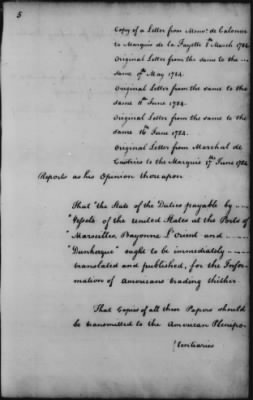 5
Copy of a Letter from Monsr. de Calonne
to Marquis de la Fayette 8th March 1784
Original Letter from the same to the
same 9th May 1784.
Original Letter from the same to the
same 11th June 1784.
Original Letter from the same to the
same 16th June 1784.
Original Letter from Marshal de
Castries to the Marquis 17th June 1784
Reports as his Opinion thereupon
That "the State of the Duties payable by
"Vessels of the United States at the Ports of
"Marseilles, Bayonne, L'Orient and
"Dunkerque" ought to be immediately
translated and published, for the Infor-
mation of Americans trading thither
That Copies of all these Papers should
be transmitted to the American Plenipo-
/tentiaries